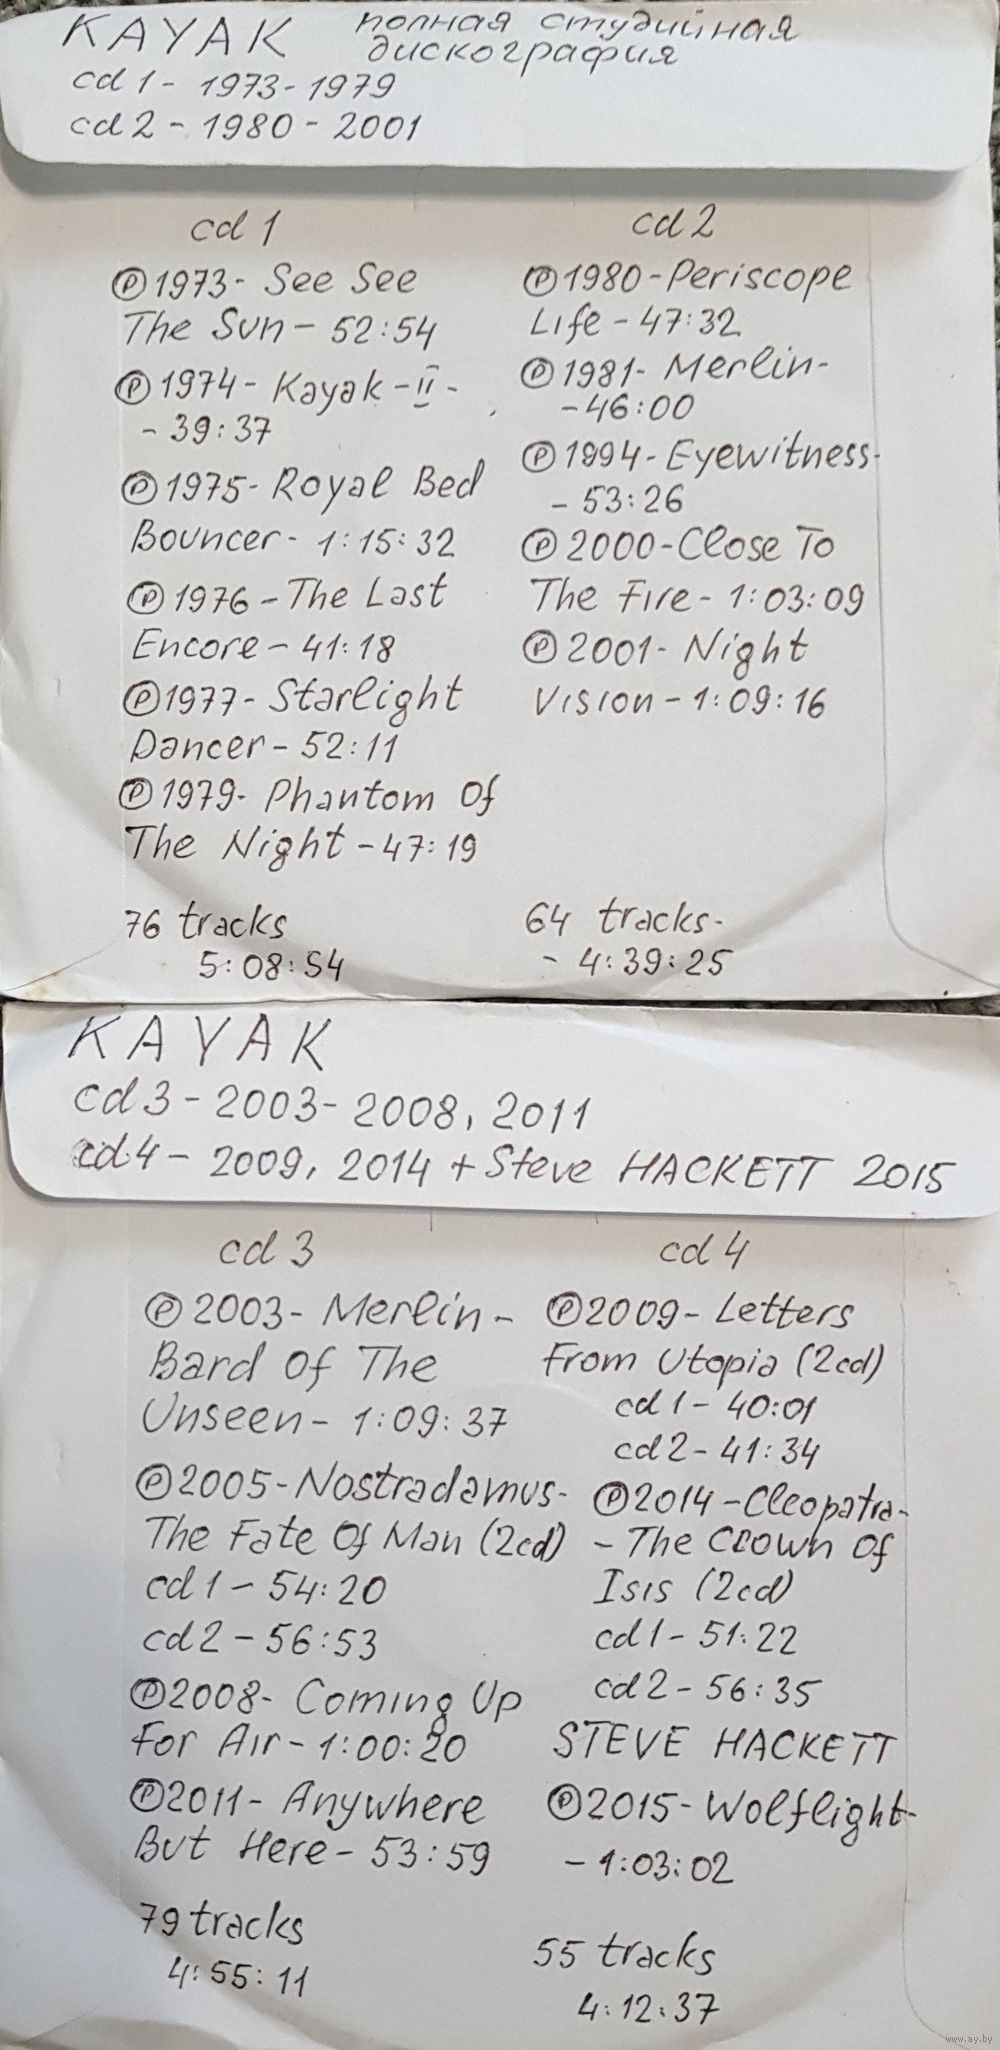 KAYAK полная студийная
дискография
cd 1 - 1973 - 1979
cd 2 - 1980 - 2001
cd 1
Ⓟ 1973 - See See
The Sun - 52:54
Ⓟ 1974 - Kayak - II -
- 39:37
Ⓟ 1975 - Royal Bed
Bouncer - 1:15:32
Ⓟ 1976 - The Last
Encore - 41:18
Ⓟ 1977 - Starlight
Dancer - 52:11
Ⓟ 1979 - Phantom Of
The Night - 47:19
76 tracks
5:08:54
cd 2
Ⓟ 1980 - Periscope
Life - 47:32
Ⓟ 1981 - Merlin -
- 46:00
Ⓟ 1994 - Eyewitness -
- 53:26
Ⓟ 2000 - Close To
The Fire - 1:03:09
Ⓟ 2001 - Night
Vision - 1:09:16
64 tracks -
- 4:39:25
KAYAK
cd 3 - 2003 - 2008, 2011
cd 4 - 2009, 2014 + Steve HACKETT 2015
cd 3
Ⓟ 2003 - Merlin -
Bard Of The
Unseen - 1:09:37
Ⓟ 2005 - Nostradamus -
The Fate Of Man (2cd)
cd 1 - 54:20
cd 2 - 56:53
Ⓟ 2008 - Coming Up
For Air - 1:00:20
Ⓟ 2011 - Anywhere
But Here - 53:59
79 tracks
4:55:11
cd 4
Ⓟ 2009 - Letters
From Utopia (2cd)
cd 1 - 40:01
cd 2 - 41:34
Ⓟ 2014 - Cleopatra -
- The Crown Of
Isis (2cd)
cd 1 - 51:22
cd 2 - 56:35
STEVE HACKETT
Ⓟ 2015 - Wolflight -
- 1:03:02
55 tracks
4:12:37
www.ay.by